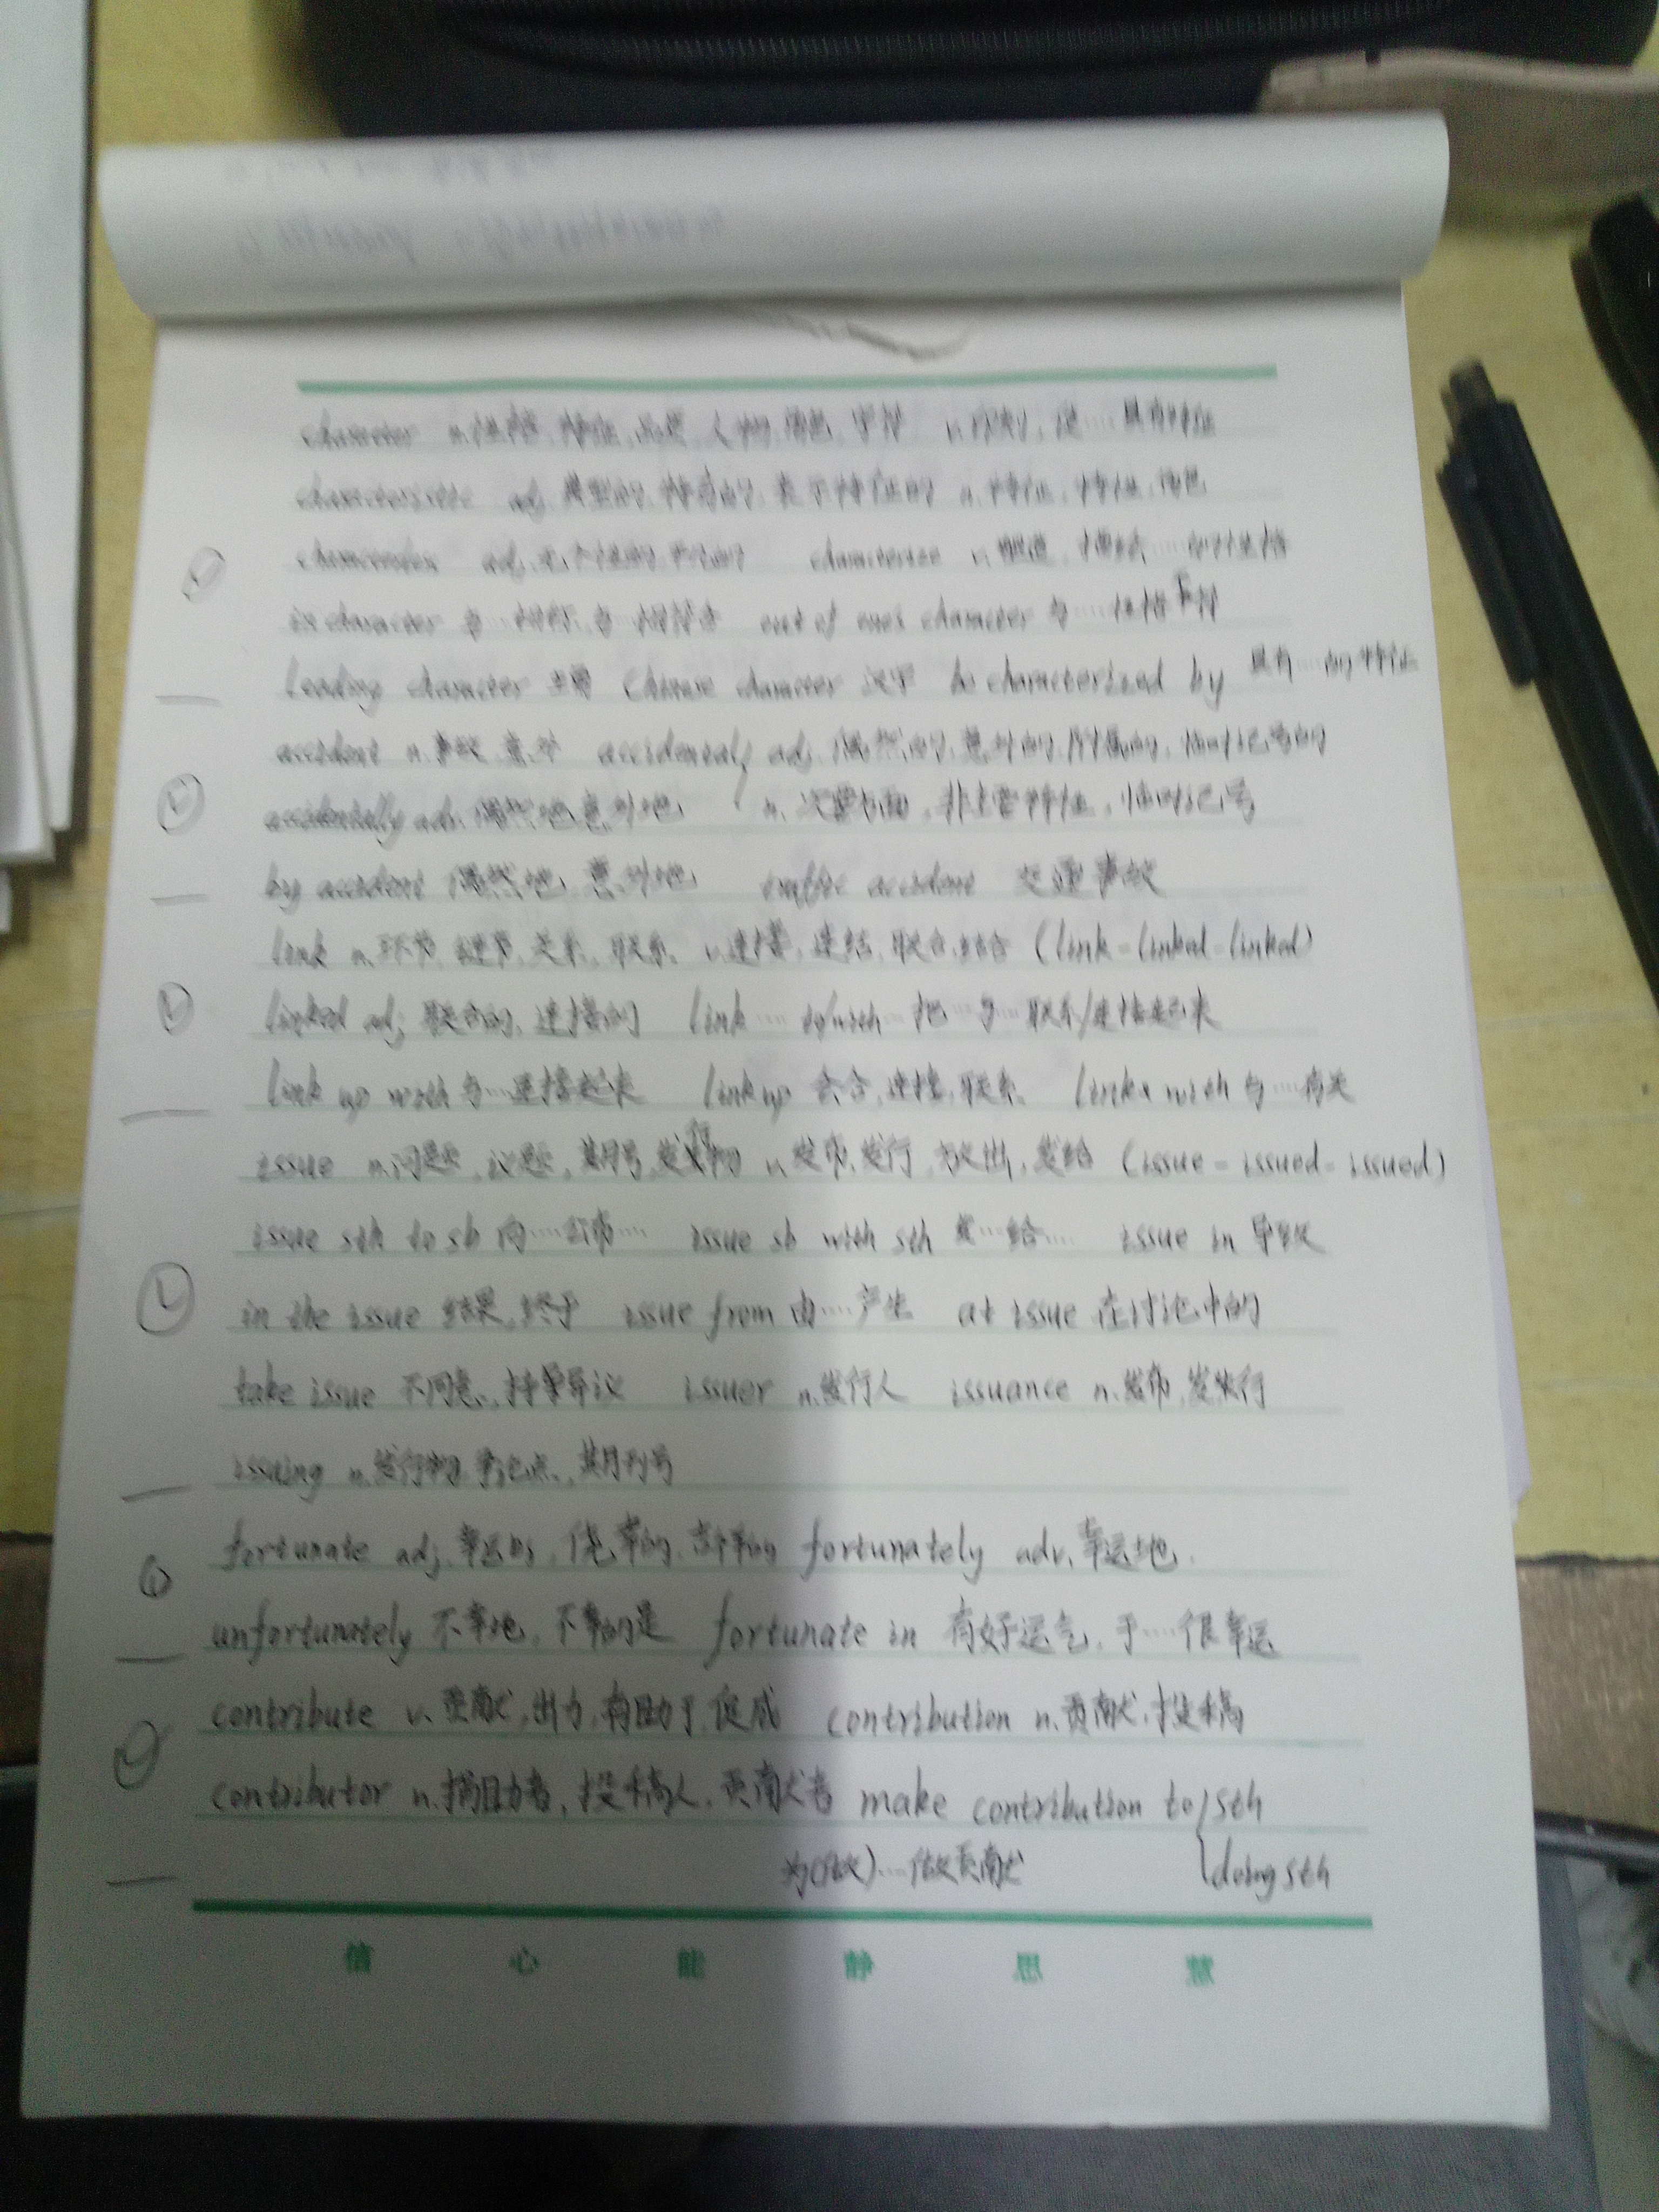 character n.性格,特征,品质,人物,角色,字符 v.印刻,使……具有特征
characteristic adj.典型的,特有的,表示特征的 n.特征,特性,角色
adj.无个性的,平凡的 characterize v.塑造,描绘……的性格
in character 与……相称,与……相符合 out of one's character 与……性格不符
Leading character 主角 Chinese character 汉字 be characterized by 具有……的特征
accident n.事故,意外 accidental adj.偶然的,意外的,附属的,临时记号的
accidentally adv.偶然地,意外地 n.次要方面,非主要特征,临时记号
by accident 偶然地,意外地 traffic accident 交通事故
link n.环节,关系,联系 v.连接,连结,联合,结合 (link-linked-linked)
linked adj 联合的,连接的 link……to/with 把……与……联系/连接起来
link up with 与……连接起来 link up 会合,连接,联系 links with 与……有关
issue n.问题,议题,期号,发行物 v.发布,发行,放出,发给 (issue-issued-issued)
issue sth to sb 向……公布…… issue sb with sth 发……给…… issue in 导致
in the issue 结果,终于 issue from 由……产生 at issue 在讨论中的
take issue 不同意,持异议 issuer n.发行人 issuance n.发布,发行
issuing n.发行物,争论点,期刊号
fortunate adj.幸运的,侥幸的, fortunately adv.幸运地.
unfortunately 不幸地,不幸的是 fortunate in 有好运气,于……很幸运
contribute v.贡献,出力,有助于,促成 contribution n.贡献,投稿
contributor n.捐助者,投稿人,贡献者 make contribution to sth
为(做)……做贡献 doing sth
信 心 能 静 思 慧